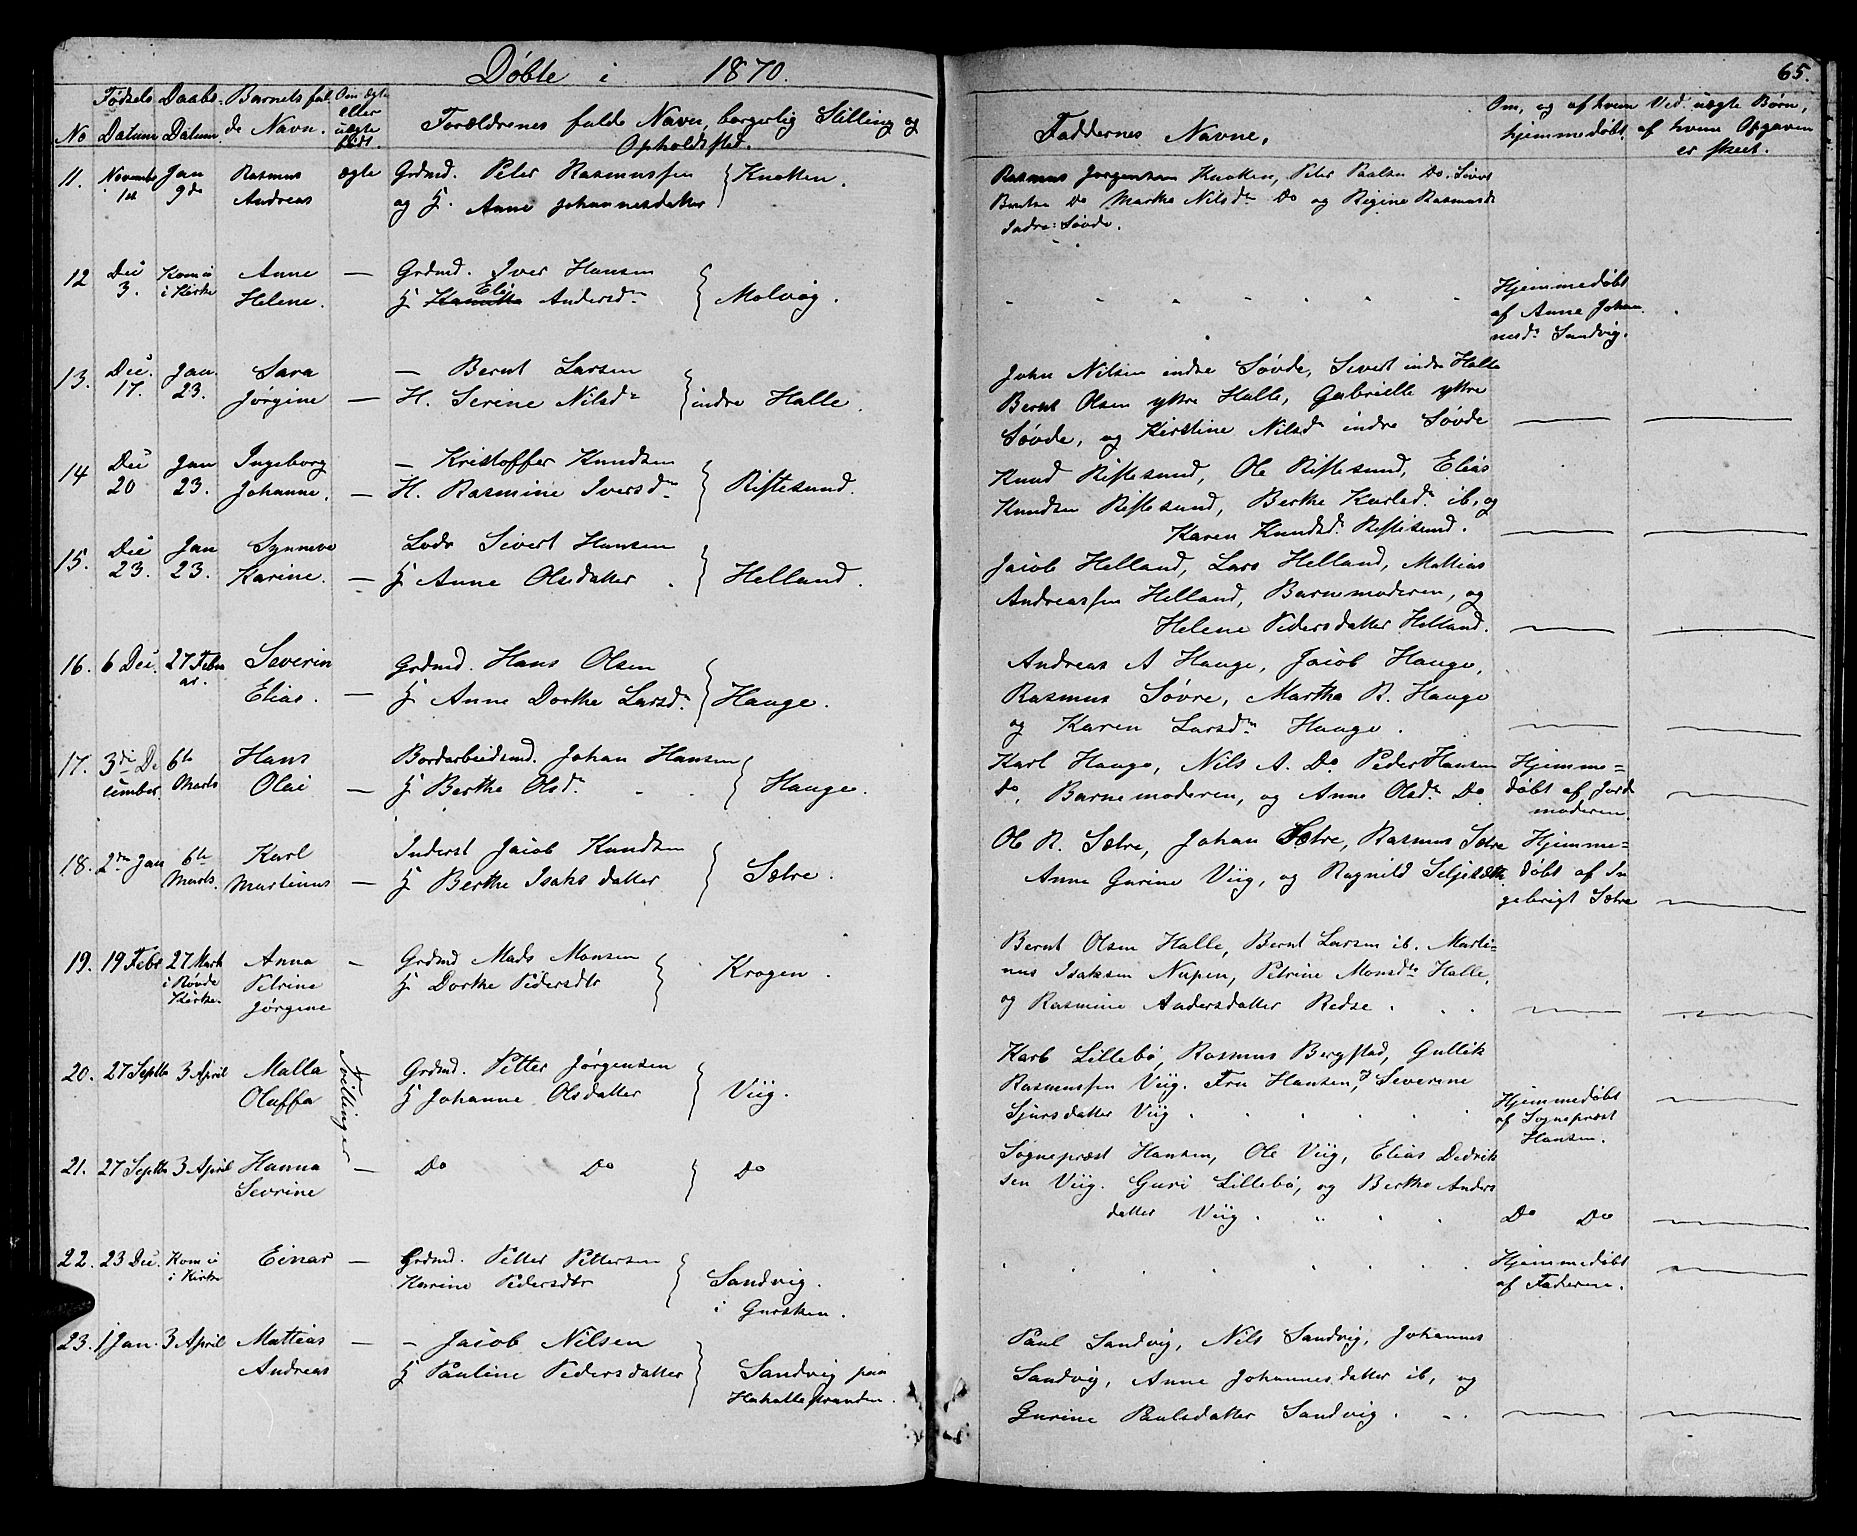 Døbte i 1870.
65.
No
Fødsels Datum
Daabs Datum.
Barnets fulde Navn.
Om ægte eller uægte født.
Forældrenes fulde Navn, borgerlig Stilling og Opholdsted.
Faddernes Navne.
Om, og af hvem hjemmedøbt
Ved uægte Børn, af hvem Opgaven er skeet.
11. Novembr 1st Jan 9de Rasmus ægte Grdmd. Peter Rasmussen } Knotten.
Andreas og H. Anne Johannesdatter
Rasmus Jørgensen Knotten, Peter Paulsen Do. Sivert
Do Marthe Nilsdr Do og Regine Rasmusd
Indre Søvde.
12 Dec 3. Kom ei i Kirke Anne — Grdmd. Iver Hansen } Molvog.
Helene. H Elis Andersdr
Hjemmedøbt
af Anne Johan
nesdr Sandvig.
13. Dec. 17. Jan 23. Sara — Bernt Larsen } indre Halle.
Jørgine — H. Serine Nilsdr
John Nilsen indre Søvde, Sivert indre Halle
Bernt Olsen yttre Halle, Gabrielle yttre
Søvde, og Kirstine Nilsd indre Søvde
14 Dec 20 Jan 23. Ingeborg — Kristoffer Knudsen } Riftesund.
Johanne. — H. Rasmine Iversdr
Knud Riftesund, Ole Riftesund, Elias
Knudsen Riftesund, Berthe Karlsdr ib, og
Karen Knudsd. Riftesund.
15. Dec 23. Jan 23. Synneve Lods Sivert Hansen } Helland.
Karine. — H Anne Olsdatter
Jacob Helland, Lars Helland, Mattias
Andreassen Helland, Barnemoderen, og
Helene Pedersdatter Helland.
16. 6 Dec. 27 Febru ar. Severin Grdmd. Hans Olsen } Hauge.
Elias. — H Anne Dorthe Larsdr
Andreas A Hauge, Jacob Hauge,
Rasmus Søvre, Martha R. Hauge
og Karen Larsdr Hauge.
17. 3die De cember 6te Marts Hans Bordarbeidsmd. Johan Hansen } Hauge.
Olai — H Berthe Olsdr
Karl Hauge, Nils A. Do. Peder Hansen
do. Barnemoderen, og Anne Olsdr Do
Hjemme=
døbt af Jord
moderen.
18. 2den Jan 6te Marts. Karl Inderst Jacob Knudsen } Sætre.
Martinus — H Berthe Isaks datter
Ole R. Sætre, Johan Sætre, Rasmus Sætre
Anne Gurine Viig, og Ragnild Seljesæth
Hjemme=
døbt af In
gebrigt Sætre
19. 19 Febr 27 Mart i Røvde Kirke. Anna — Grdmd Mads Monsen } Krogen.
Petrine H Dorthe Pedersdtr
Jørgine
Bernt Olsen Halle, Bernt Larsen ib. Marti=
nus Isaksen Nupen, Petrine Monsdtr Halle,
og Rasmine Andersdatter Redse.
20. 27 Septbr 3 April Malla Tvillinger Grdmd. Petter Jørgensen } Viig.
Oluffa H Johanne Olsdatter
Karl Lillebø, Rasmus Bergstad, Gullik
Rasmussen Viig. Fru Hansen, og Severine
Sjursdatter Viig
Hjemmedøbt
af Sognepræst
Hansen.
21. 27 Septbr 3 April Hanna — Do Do } Do
Sevrine
Sognepræst Hansen, Ole Viig, Elias Dedrik
sen Viig. Guri Lillebø, og Berthe Anders
datter Viig.
Do Do
22. 23 Dec. Kom ei i Kirke Einar — Grdmd. Petter Pettersen } Sandvig.
Karine Pedersdtr i Gursken.
Hjemmedøbt
af Faderen.
23. 1 Jan. 3 April Mattias — - Jacob Nilsen } Sandvig paa
Andreas H Pauline Pedersdatter Hakallestranden.
Paul Sandvig, Nils Sandvig, Johannes
Sandvig, Anne Johannes datter ib, og
Gurine Paulsdatter Sandvig.